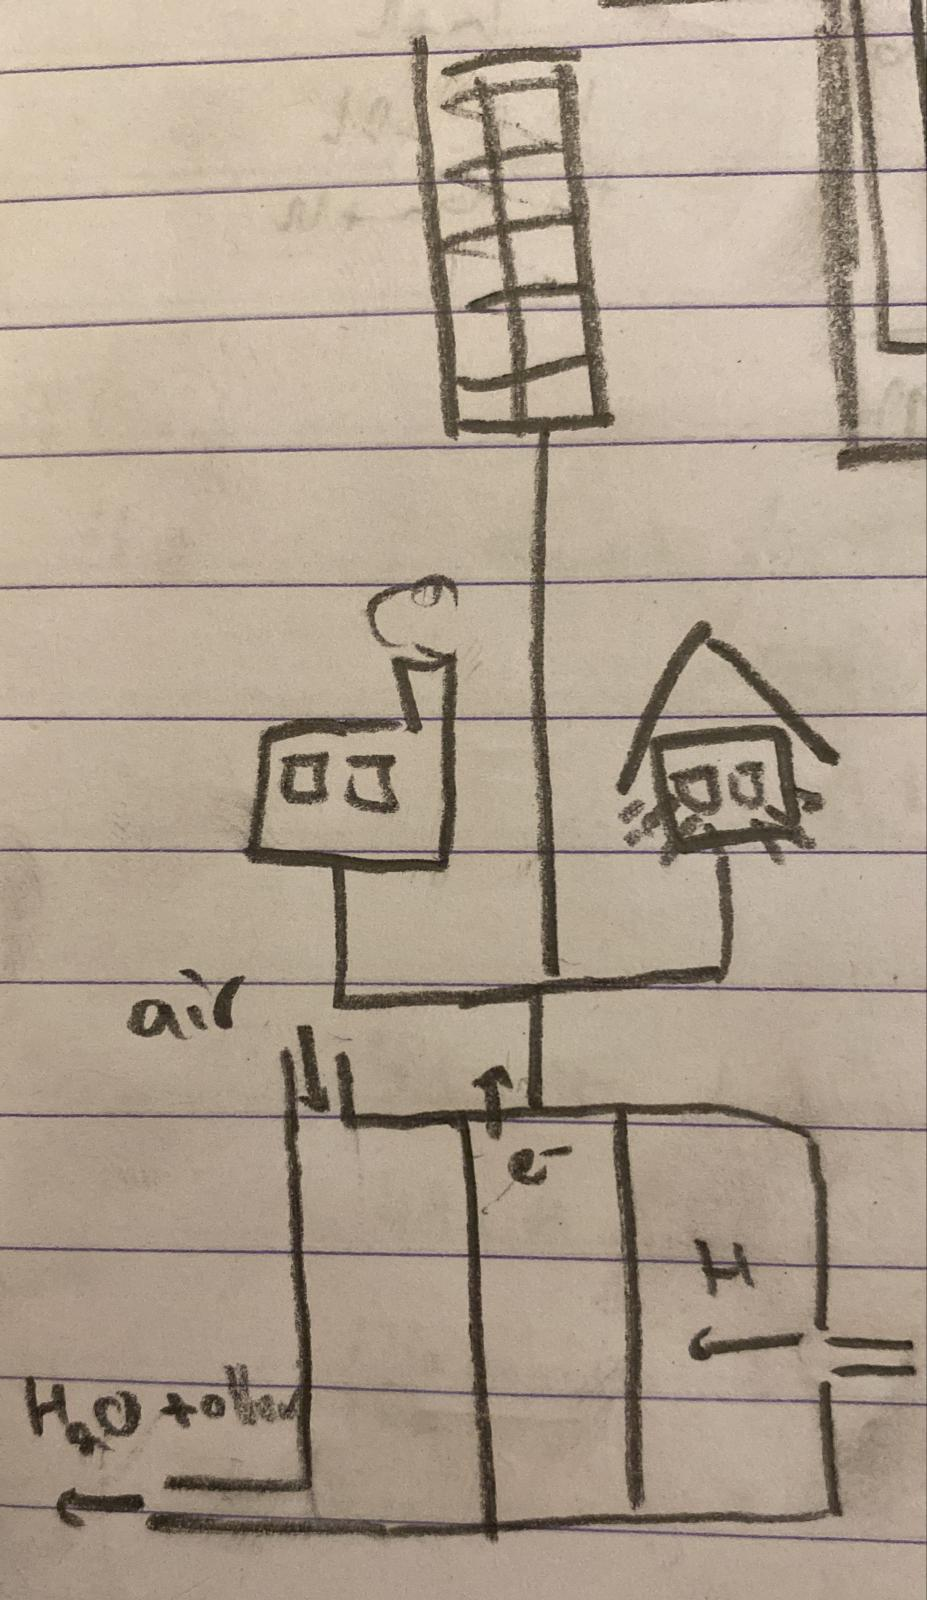 air
e-
H
H₂O + other